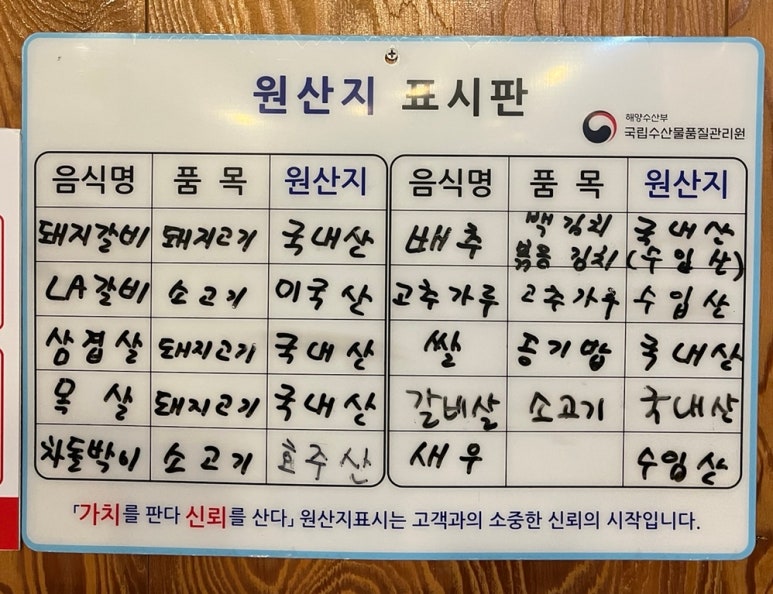 원산지 표시판
해양수산부
국립수산물품질관리원
음식명 품 목 원산지
돼지갈비 돼지고기 국내산
LA갈비 소고기 미국산
삼겹살 돼지고기 국내산
목살 돼지고기 국내산
차돌박이 소고기 호주산
음식명 품 목 원산지
배추 백김치 국내산
볶음김치 (수입산)
고추가루 고추가루 수입산
쌀 공기밥 국내산
갈비살 소고기 국내산
새우 수입산
「가치를 판다 신뢰를 산다」 원산지표시는 고객과의 소중한 신뢰의 시작입니다.